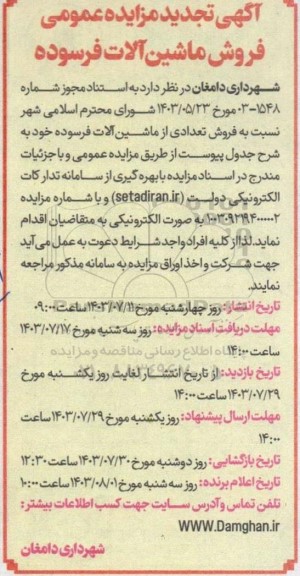 آگهی تجدید مزایده عمومی
فروش ماشین‌آلات فرسوده
شهرداری دامغان در نظر دارد به استناد مجوز شماره
۰۳-۱۵۴۸ مورخ ۱۴۰۳/۰۵/۲۳ شورای محترم اسلامی شهر
نسبت به فروش تعدادی از ماشین‌آلات فرسوده خود به
شرح جدول پیوست از طریق مزایده عمومی و با جزئیات
مندرج در اسناد مزایده با بهره گیری از سامانه تدارکات
الکترونیکی دولت (setadiran.ir) و با شماره مزایده
به صورت الکترونیکی به متقاضیان اقدام
نماید. لذا از کلیه افراد واجد شرایط دعوت به عمل می‌آید
جهت شرکت و اخذ اوراق مزایده به سامانه مذکور مراجعه
نمایند.
تاریخ انتشار: روز چهارشنبه مورخ ۱۴۰۳/۰۷/۱۱ ساعت ۰۹:۰۰
مهلت دریافت اسناد مزایده: روز سه شنبه مورخ ۱۴۰۳/۰۷/۱۷
ساعت ۱۴:۰۰
تاریخ بازدید: از تاریخ انتشار لغایت روز یکشنبه مورخ
۱۴۰۳/۰۷/۲۹ ساعت ۱۴:۰۰
مهلت ارسال پیشنهاد: روز یکشنبه مورخ ۱۴۰۳/۰۷/۲۹ ساعت
۱۴:۰۰
تاریخ بازگشایی: روز دوشنبه مورخ ۱۴۰۳/۰۷/۳۰ ساعت ۱۲:۳۰
تاریخ اعلام برنده: روز سه شنبه مورخ ۱۴۰۳/۰۸/۰۱ ساعت ۱۰:۰۰
تلفن تماس و آدرس سایت جهت کسب اطلاعات بیشتر:
WWW.Damghan.ir
شهرداری دامغان